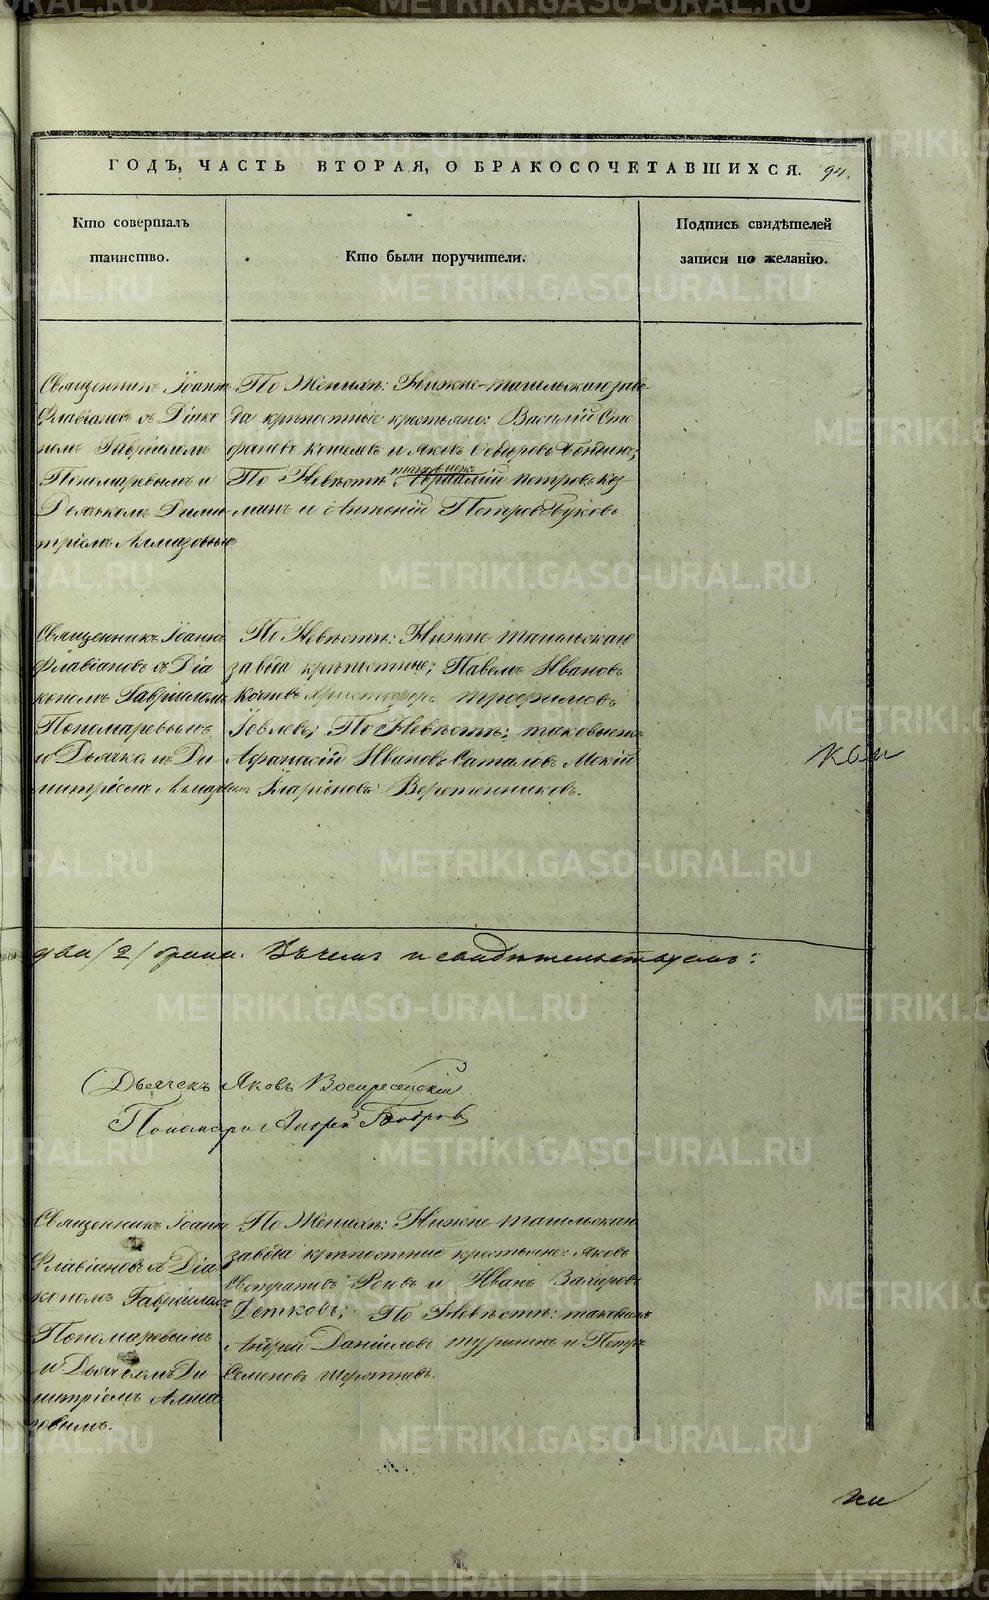 ГОДЪ, ЧАСТЬ ВТОРАЯ, О БРАКОСОЧЕТАВШИХСЯ. 94.
Кто совершалъ
таинство.
Кто были поручители.
Подпись свидѣтелей
записи по желанію.
Священникъ Іоаннъ
Флавіановъ съ Діако
номъ Гавріиломъ
Пономаревымъ и
Дьячкомъ Дими
тріемъ Алмазовымъ
По Женихѣ: Нижне-тагильскаго заво
да крѣпостные крестьяне: Василій Сте
фановъ Копыловъ и Яковъ Ѳедоровъ
По Невѣстѣ Петровъ Коз
манъ и Антоній Петровъ Буковъ
Священникъ Іоаннъ
Флавіановъ съ Діа
кономъ Гавріиломъ
Пономаревымъ
и Дьячкомъ Ди
митріемъ
По Невѣстѣ: Нижне тагильскаго
завода крѣпостные; Павелъ Ивановъ
Христофоръ Трофимовъ
По Невѣстѣ; таковыежъ
Афанасій Ивановъ Мокій
Иларіоновъ Веретенниковъ.
два /2/ брака. Въ чемъ и свидѣтельствуемъ:
Дьячекъ Яковъ Воскресенскій
Пономарь Андрей Бобровъ
Священникъ Іоаннъ
Флавіановъ съ Діа
кономъ Гавріиломъ
Пономаревымъ
и Дьячкомъ Ди
митріемъ Алма
зовымъ.
По Женихѣ: Нижне тагильскаго
завода крѣпостные крестьяне: Яковъ
и Иванъ Захаровъ
Детковъ; По Невѣстѣ: таковыежъ
Андрей Даніиловъ и Петръ
Семеновъ
METRIKI.GASO-URAL.RU